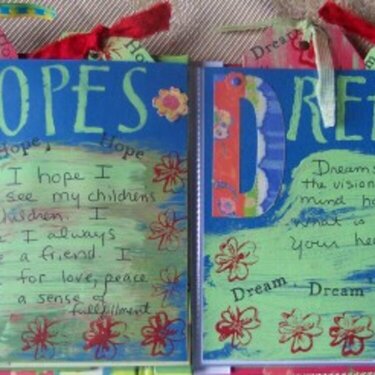 OPES
Hope Hope
I hope I
see my childrens
children. I
I always
a friend. I
for love, peace
a sense of
fulfillment
Dream
DRE
Dreams
the vision
mind
what is
your
Dream Dream